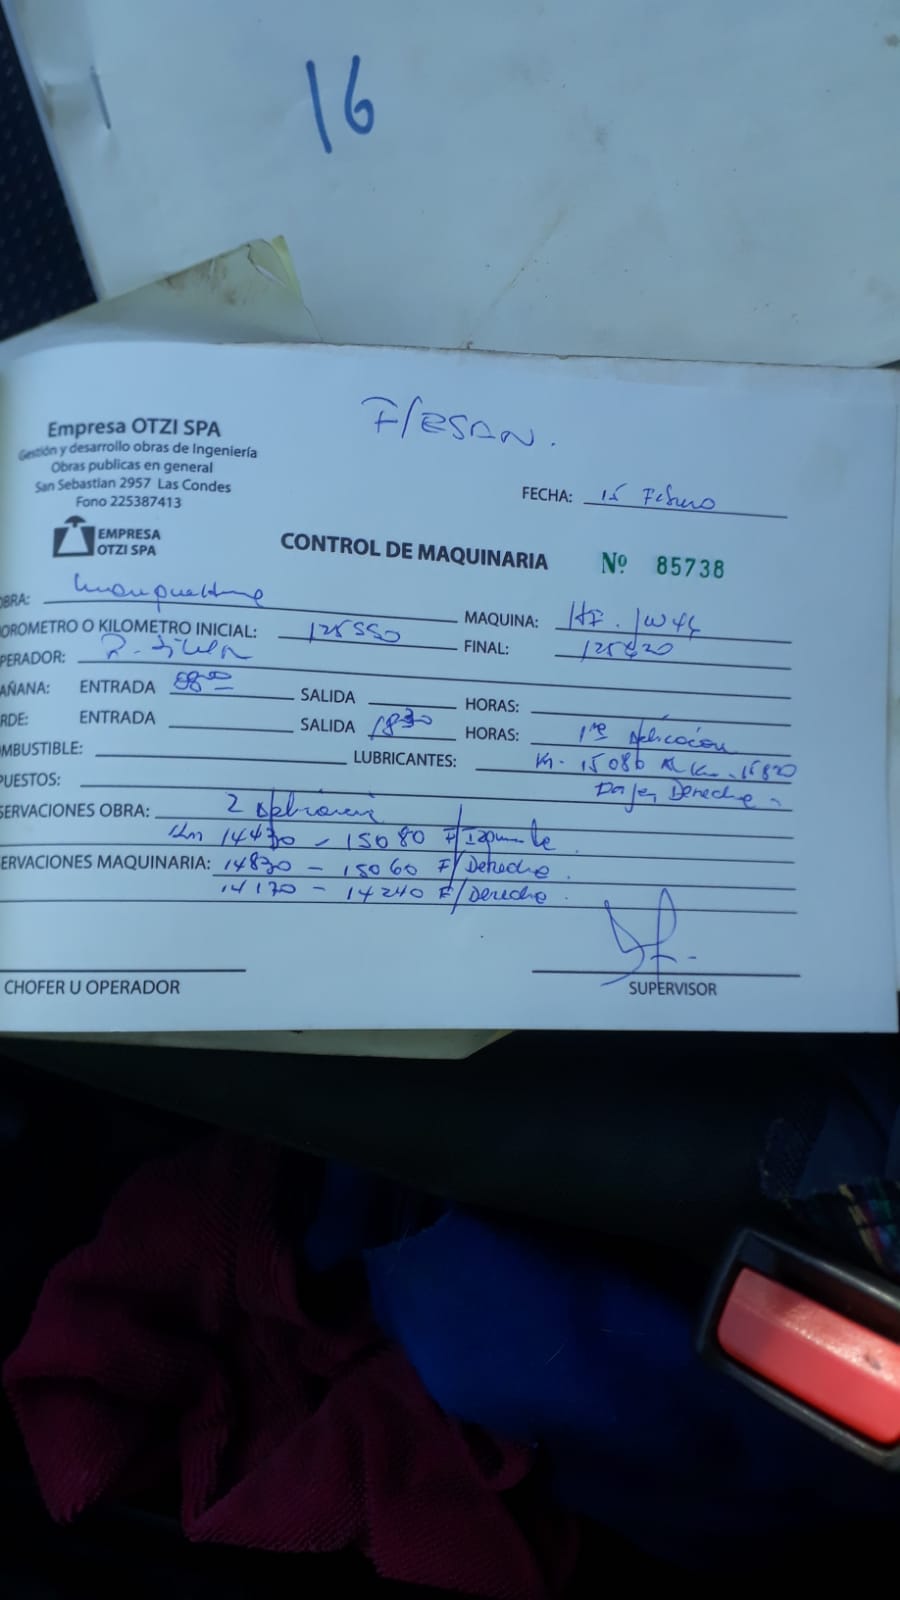 16
F/ESAN.
Empresa OTZI SPA
Gestión y desarrollo obras de Ingeniería
Obras publicas en general
San Sebastian 2957 Las Condes
Fono 225387413
EMPRESA
OTZI SPA
FECHA: 15 Febrero
CONTROL DE MAQUINARIA Nº 85738
OBRA:
MAQUINA:
OROMETRO O KILOMETRO INICIAL: 125550 FINAL:
PERADOR: R. Silva
AÑANA: ENTRADA 08:00 SALIDA HORAS:
RDE: ENTRADA SALIDA 1830 HORAS: 1ra Aplicación
OMBUSTIBLE: LUBRICANTES: Km. 15080 Al Km. 15820
PUESTOS: Derecho
SERVACIONES OBRA: 2
Km 14430 - 15080 F/Izquierdo
SERVACIONES MAQUINARIA: 14830 - 15060 F/Derecho.
14170 - 14240 F/Derecho.
CHOFER U OPERADOR
SUPERVISOR